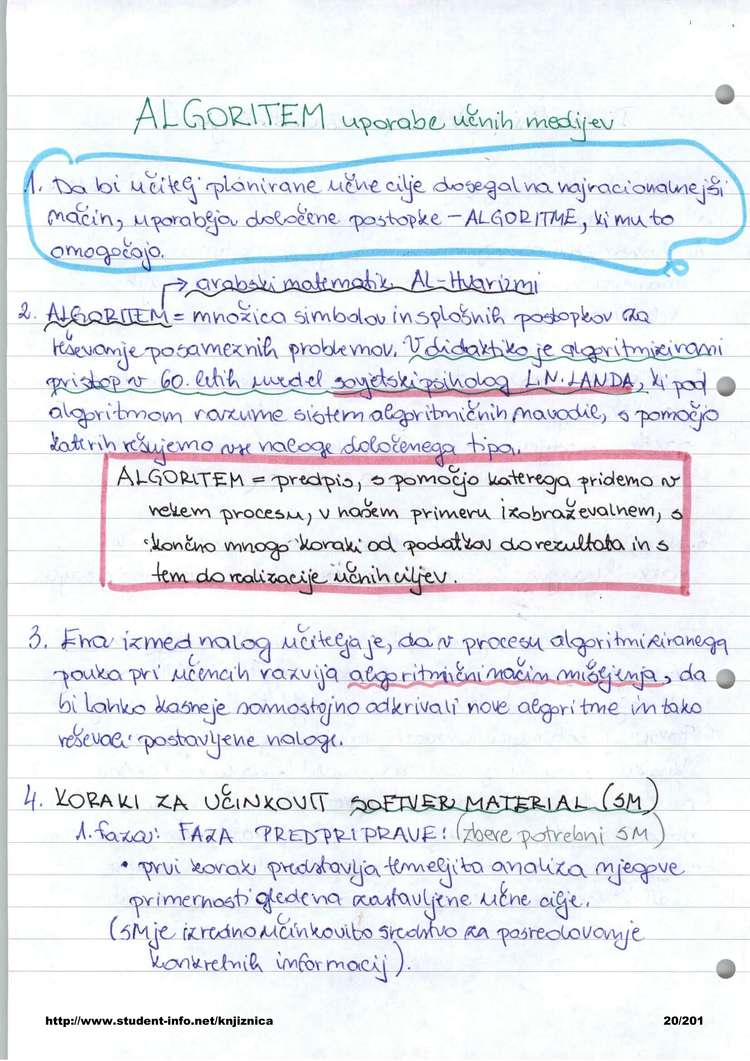 ALGORITEM uporabe učnih medijev
1. Da bi učitelj planirane učne cilje dosegal na najracionalnejši
način, uporablja določene postopke – ALGORITME, ki mu to
omogočajo.
→ arabski matematik AL-Hvarizmi
2. ALGORITEM = množica simbolov in splošnih postopkov za
reševanje posameznih problemov. V didaktiko je algoritmizirani
pristop v 60. letih uvedel sovjetski psiholog L.N. LANDA, ki pod
algoritmom razume sistem algoritmičnih navodil, s pomočjo
katerih rešujemo vse naloge določenega tipa.
ALGORITEM = predpis, s pomočjo katerega pridemo v
nekem procesu, v našem primeru izobraževalnem, s
končno mnogo koraki od podatkov do rezultata in s
tem do realizacije učnih ciljev.
3. Ena izmed nalog učitelja je, da v procesu algoritmiziranega
pouka pri učencih razvija algoritmični način mišljenja, da
bi lahko kasneje samostojno odkrivali nove algoritme in tako
reševali postavljene naloge.
4. KORAKI ZA UČINKOVIT SOFTVER MATERIAL (SM)
1. faza: FAZA PREDPRIPRAVE: (zbere potrebni SM)
• prvi korak predstavlja temeljita analiza njegove
primernosti glede na zastavljene učne cilje.
(SM je izredno učinkovito sredstvo za posredovanje
konkretnih informacij).
http://www.student-info.net/knjiznica
20/201